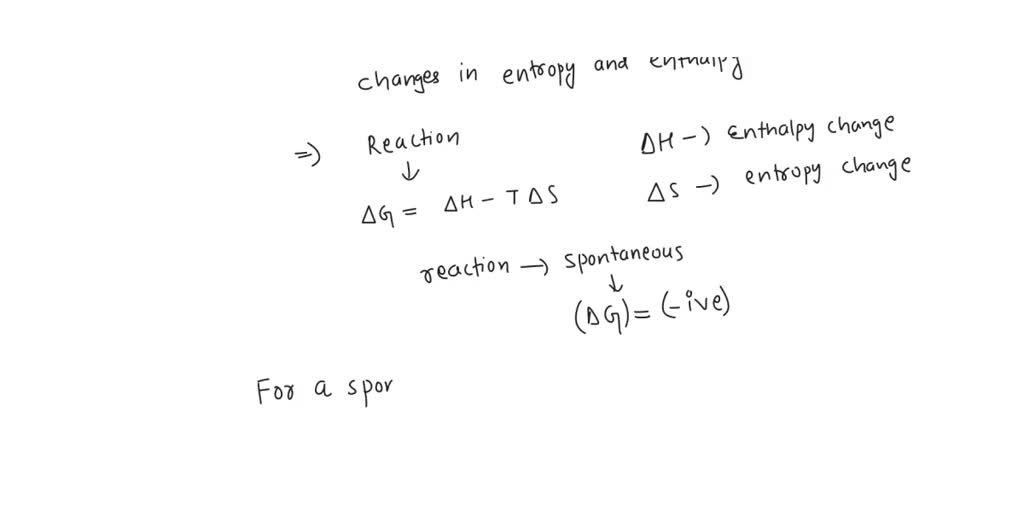 changes in entropy and enthalpy
=) Reaction
↓
ΔG = ΔH - TΔS
ΔH -) Enthalpy change
ΔS -) entropy change
reaction -) spontaneous
↓
(ΔG) = (-ive)
For a spon